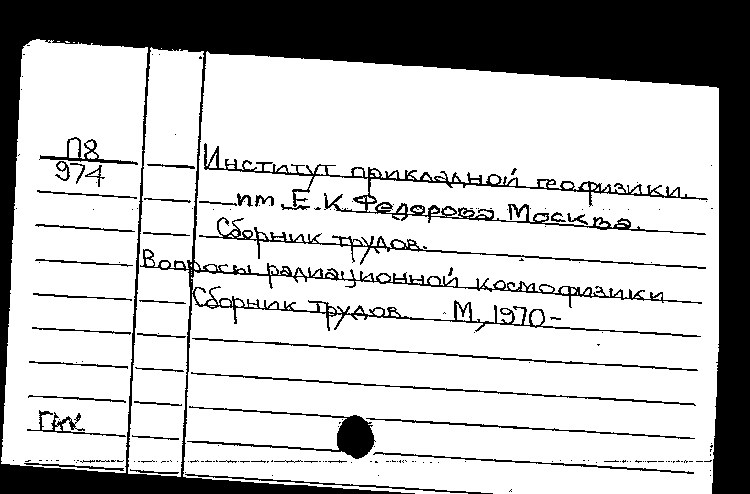 П8
974
Институт прикладной геофизики.
им. Е.К. Федорова Москва.
Сборник трудов.
Вопросы радиационной космофизики
Сборник трудов. М., 1970-